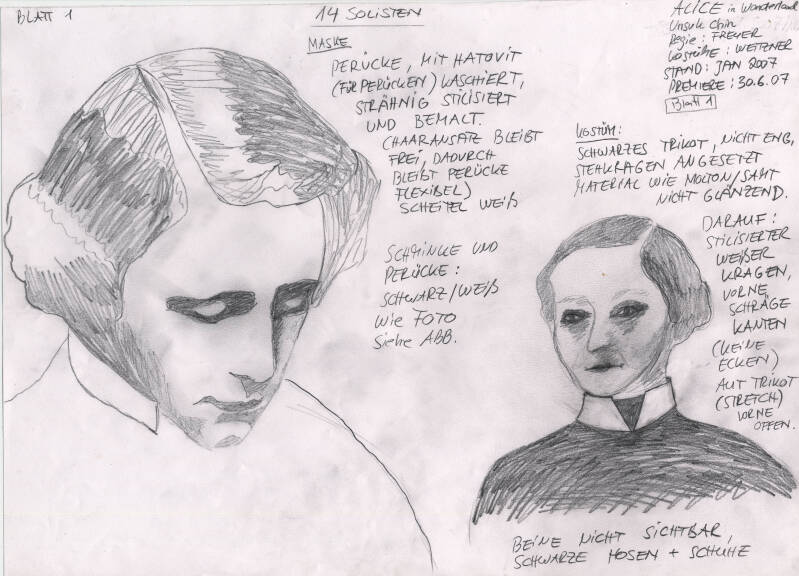 BLATT 1
14 SOLISTEN
ALICE in Wonderland
Unsuk Chin
Regie: FREYER
Kostüme: WETZNER
STAND: JAN 2007
PREMIERE: 30.6.07
Blatt 1
MASKE
PERÜCKE, MIT HATOVIT
(FÜR PERÜCKEN) KASCHIERT,
STRÄHNIG STILISIERT
UND BEMALT.
(HAARANSATZ BLEIBT
FREI, DADURCH
BLEIBT PERÜCKE
FLEXIBEL)
SCHEITEL WEIß
SCHMINKE UND
PERÜCKE:
SCHWARZ/WEIß
WIE FOTO
Siehe ABB.
KOSTÜM:
SCHWARZES TRIKOT, NICHT ENG,
STEHKRAGEN ANGESETZT
MATERIAL WIE MOLTON/SAMT
NICHT GLÄNZEND.
DARAUF:
STILISIERTER
WEIßER
KRAGEN,
VORNE
SCHRÄGE
KANTEN
(KEINE
ECKEN)
AUF TRIKOT
(STRETCH)
VORNE
OFFEN.
BEINE NICHT SICHTBAR,
SCHWARZE HOSEN + SCHUHE